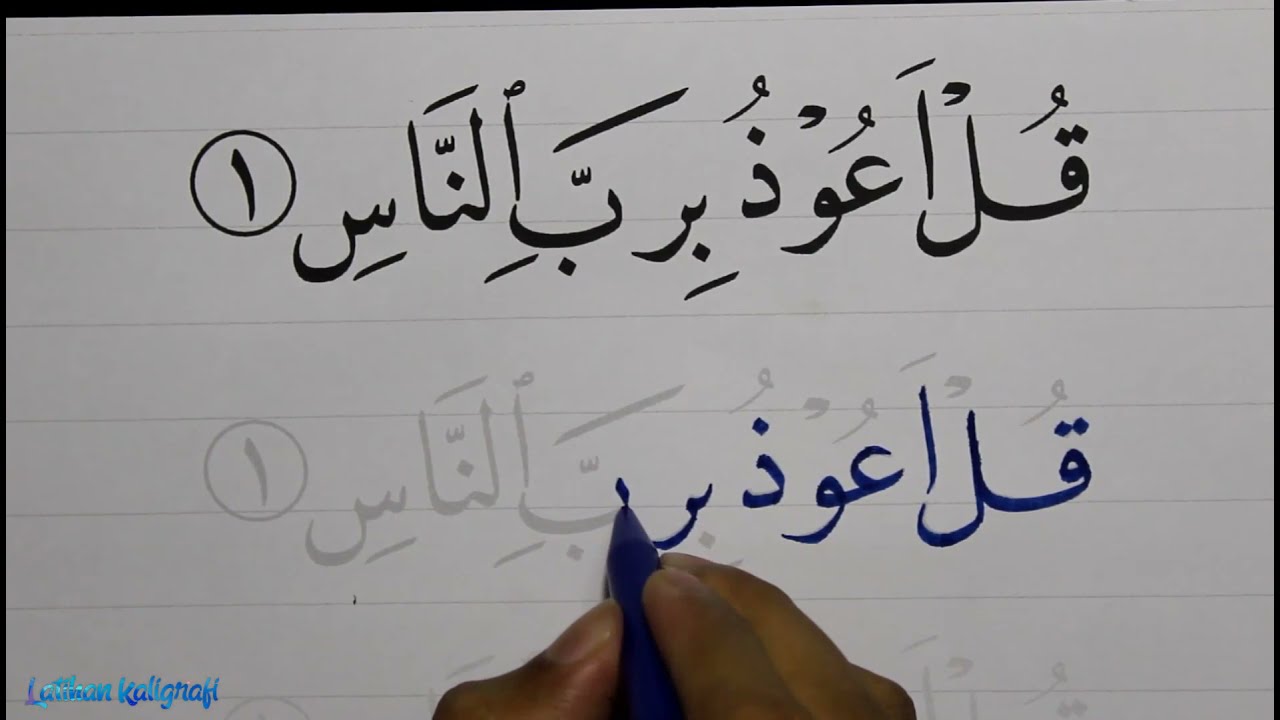 قُلْ اَعُوْذُ بِرَبِّ ٱلنَّاسِ ١
قُلْ اَعُوْذُ بِرَبِّ ٱلنَّاسِ ١
Latihan Kaligrafi